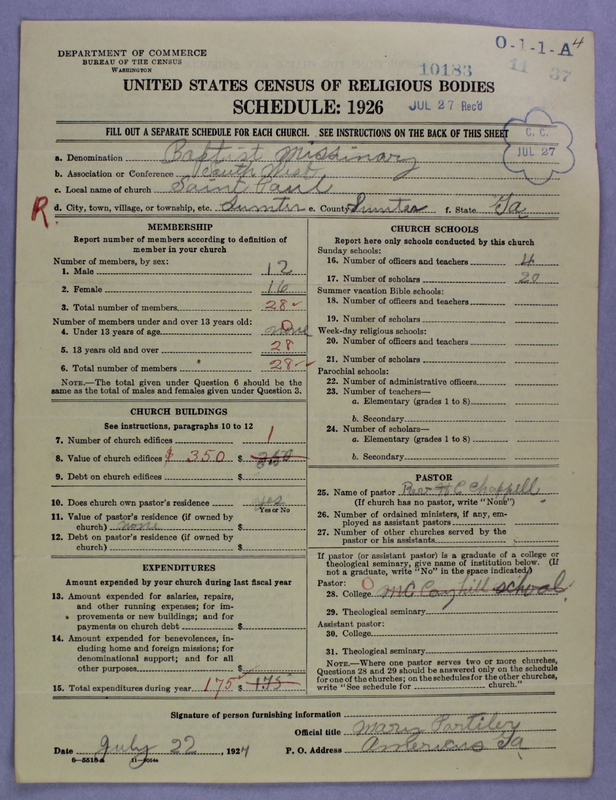 DEPARTMENT OF COMMERCE
BUREAU OF THE CENSUS
WASHINGTON
O-1-1-A 4
10183
11 37
UNITED STATES CENSUS OF RELIGIOUS BODIES
SCHEDULE: 1926
JUL 27 Rec'd
FILL OUT A SEPARATE SCHEDULE FOR EACH CHURCH. SEE INSTRUCTIONS ON THE BACK OF THIS SHEET
C. C.
JUL 27
a. Denomination Baptist Missinary
b. Association or Conference South West
c. Local name of church Saint Paul
R
d. City, town, village, or township, etc. Sumter e. County Sumter f. State Ga
MEMBERSHIP
Report number of members according to definition of
member in your church
Number of members, by sex:
1. Male 12
2. Female 16
3. Total number of members 28
Number of members under and over 13 years old:
4. Under 13 years of age none 0
5. 13 years old and over 28
6. Total number of members 28
NOTE.—The total given under Question 6 should be the
same as the total of males and females given under Question 3.
CHURCH BUILDINGS
See instructions, paragraphs 10 to 12
7. Number of church edifices 1
8. Value of church edifices $ 350 $ 350
9. Debt on church edifices $
10. Does church own pastor's residence yes
Yes or No
11. Value of pastor's residence (if owned by
church) none $
12. Debt on pastor's residence (if owned by
church) $
EXPENDITURES
Amount expended by your church during last fiscal year
13. Amount expended for salaries, repairs,
and other running expenses; for im-
provements or new buildings; and for
payments on church debt $
14. Amount expended for benevolences, in-
cluding home and foreign missions; for
denominational support; and for all
other purposes $
15. Total expenditures during year 175 $ 175
CHURCH SCHOOLS
Report here only schools conducted by this church
Sunday schools:
16. Number of officers and teachers 4
17. Number of scholars 20
Summer vacation Bible schools:
18. Number of officers and teachers
19. Number of scholars
Week-day religious schools:
20. Number of officers and teachers
21. Number of scholars
Parochial schools:
22. Number of administrative officers
23. Number of teachers—
a. Elementary (grades 1 to 8)
b. Secondary
24. Number of scholars—
a. Elementary (grades 1 to 8)
b. Secondary
PASTOR
25. Name of pastor Rev. H C Chappell
(If church has no pastor, write "None")
26. Number of ordained ministers, if any, em-
ployed as assistant pastors
27. Number of other churches served by the
pastor or his assistants
If pastor (or assistant pastor) is a graduate of a college or
theological seminary, give name of institution below. (If
not a graduate, write "No" in the space indicated.)
Pastor:
28. College 0 school
29. Theological seminary
Assistant pastor:
30. College
31. Theological seminary
NOTE.—Where one pastor serves two or more churches,
Questions 28 and 29 should be answered only on the schedule
for one of the churches; on the schedules for the other churches,
write "See schedule for church."
Signature of person furnishing information
Official title Mary
Date July 22, 1927 P. O. Address Americus Ga